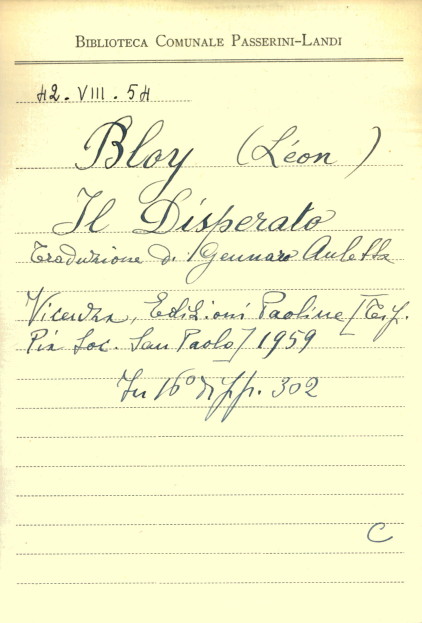 BIBLIOTECA COMUNALE PASSERINI-LANDI
42. VIII. 54
Bloy (Léon)
Il Disperato
Traduzione di Gennaro Auletta
Vicenza, Edizioni Paoline [Tip.
Pia Soc. San Paolo] 1959
In 16° di pp. 302
C